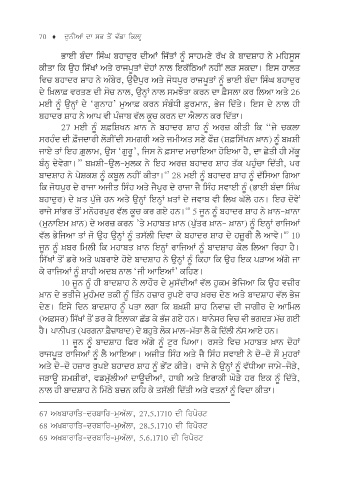 70 • ਦੁਨੀਆਂ ਦਾ ਸਭ ਤੋਂ ਵੱਡਾ ਕਿਲ੍ਹਾ
ਭਾਈ ਬੰਦਾ ਸਿੰਘ ਬਹਾਦੁਰ ਦੀਆਂ ਜਿੱਤਾਂ ਨੂੰ ਸਾਹਮਣੇ ਰੱਖ ਕੇ ਬਾਦਸ਼ਾਹ ਨੇ ਮਹਿਸੂਸ
ਕੀਤਾ ਕਿ ਉਹ ਸਿੱਖਾਂ ਅਤੇ ਰਾਜਪੂਤਾਂ ਦੋਹਾਂ ਨਾਲ ਇਕੱਠਿਆਂ ਨਹੀਂ ਲੜ ਸਕਦਾ। ਇਸ ਹਾਲਤ
ਵਿਚ ਬਹਾਦਰ ਸ਼ਾਹ ਨੇ ਅੰਬੇਰ, ਉਦੈਪੁਰ ਅਤੇ ਜੋਧਪੁਰ ਰਾਜਪੂਤਾਂ ਨੂੰ ਭਾਈ ਬੰਦਾ ਸਿੰਘ ਬਹਾਦੁਰ
ਦੇ ਖ਼ਿਲਾਫ਼ ਵਰਤਣ ਦੀ ਸੋਚ ਨਾਲ, ਉਨ੍ਹਾਂ ਨਾਲ ਸਮਝੌਤਾ ਕਰਨ ਦਾ ਫ਼ੈਸਲਾ ਕਰ ਲਿਆ ਅਤੇ 26
ਮਈ ਨੂੰ ਉਨ੍ਹਾਂ ਦੇ 'ਗੁਨਾਹ' ਮੁਆਫ਼ ਕਰਨ ਸੰਬੰਧੀ ਫ਼ੁਰਮਾਨ, ਭੇਜ ਦਿੱਤੇ। ਇਸ ਦੇ ਨਾਲ ਹੀ
ਬਹਾਦਰ ਸ਼ਾਹ ਨੇ ਆਪ ਵੀ ਪੰਜਾਬ ਵੱਲ ਕੂਚ ਕਰਨ ਦਾ ਐਲਾਨ ਕਰ ਦਿੱਤਾ।
27 ਮਈ ਨੂੰ ਸ਼ਫ਼ਸ਼ਿਖਨ ਖ਼ਾਨ ਨੇ ਬਹਾਦਰ ਸ਼ਾਹ ਨੂੰ ਅਰਜ਼ ਕੀਤੀ ਕਿ "ਜੇ ਚਕਲਾ
ਸਰਹੰਦ ਦੀ ਫ਼ੌਜਦਾਰੀ ਲੋੜੀਂਦੀ ਸਮਗਰੀ ਅਤੇ ਜਮੀਅਤ ਸਣੇ ਫ਼ੌਜ (ਸ਼ਫ਼ਸ਼ਿੱਖਨ ਖ਼ਾਨ) ਨੂੰ ਬਖ਼ਸ਼ੀ
ਜਾਏ ਤਾਂ ਇਹ ਗ਼ੁਲਾਮ, ਉਸ 'ਗੁਰੂ', ਜਿਸ ਨੇ ਫ਼ਸਾਦ ਮਚਾਇਆ ਹੋਇਆ ਹੈ, ਦਾ ਛੇਤੀ ਹੀ ਮੱਕੂ
ਬੰਨ੍ਹ ਦੇਵੇਗਾ।" ਬਖ਼ਸ਼ੀ-ਉਲ-ਮੁਲਕ ਨੇ ਇਹ ਅਰਜ਼ ਬਹਾਦਰ ਸ਼ਾਹ ਤੱਕ ਪਹੁੰਚਾ ਦਿੱਤੀ, ਪਰ
ਬਾਦਸ਼ਾਹ ਨੇ ਪੇਸ਼ਕਸ਼ ਨੂੰ ਕਬੂਲ ਨਹੀਂ ਕੀਤਾ।67 28 ਮਈ ਨੂੰ ਬਹਾਦਰ ਸ਼ਾਹ ਨੂੰ ਦੱਸਿਆ ਗਿਆ
ਕਿ ਜੋਧਪੁਰ ਦੇ ਰਾਜਾ ਅਜੀਤ ਸਿੰਘ ਅਤੇ ਜੈਪੁਰ ਦੇ ਰਾਜਾ ਜੈ ਸਿੰਹ ਸਵਾਈ ਨੂੰ (ਭਾਈ ਬੰਦਾ ਸਿੰਘ
ਬਹਾਦੁਰ) ਦੇ ਖ਼ਤ ਪੁੱਜੇ ਹਨ ਅਤੇ ਉਨ੍ਹਾਂ ਇਨ੍ਹਾਂ ਖ਼ਤਾਂ ਦੇ ਜਵਾਬ ਵੀ ਲਿਖ ਘੱਲੇ ਹਨ। ਇਹ ਦੋਵੇਂ
ਰਾਜੇ ਸਾਂਭਰ ਤੋਂ ਮਨੋਹਰਪੁਰ ਵੱਲ ਕੂਚ ਕਰ ਗਏ ਹਨ।68 5 ਜੂਨ ਨੂੰ ਬਹਾਦਰ ਸ਼ਾਹ ਨੇ ਖ਼ਾਨ-ਖ਼ਾਨਾ
(ਮੁਨਾਇਮ ਖ਼ਾਨ) ਦੇ ਅਰਜ਼ ਕਰਨ 'ਤੇ ਮਹਾਬਤ ਖ਼ਾਨ (ਪੁੱਤਰ ਖ਼ਾਨ- ਖ਼ਾਨਾ) ਨੂੰ ਇਨ੍ਹਾਂ ਰਾਜਿਆਂ
ਵੱਲ ਭੇਜਿਆ ਤਾਂ ਜੋ ਉਹ ਉਨ੍ਹਾਂ ਨੂੰ ਤਸੱਲੀ ਦਿਵਾ ਕੇ ਬਹਾਦਰ ਸ਼ਾਹ ਦੇ ਹਜ਼ੂਰੀ ਲੈ ਆਵੇ।69 10
ਜੂਨ ਨੂੰ ਖ਼ਬਰ ਮਿਲੀ ਕਿ ਮਹਾਬਤ ਖ਼ਾਨ ਇਨ੍ਹਾਂ ਰਾਜਿਆਂ ਨੂੰ ਬਾਦਸ਼ਾਹ ਕੋਲ ਲਿਆ ਰਿਹਾ ਹੈ।
ਸਿੱਖਾਂ ਤੋਂ ਡਰੇ ਅਤੇ ਘਬਰਾਏ ਹੋਏ ਬਾਦਸ਼ਾਹ ਨੇ ਉਨ੍ਹਾਂ ਨੂੰ ਕਿਹਾ ਕਿ ਉਹ ਇਕ ਪੜਾਅ ਅੱਗੇ ਜਾ
ਕੇ ਰਾਜਿਆਂ ਨੂੰ ਸ਼ਾਹੀ ਅਦਬ ਨਾਲ 'ਜੀ ਆਇਆਂ' ਕਹਿਣ।
10 ਜੂਨ ਨੂੰ ਹੀ ਬਾਦਸ਼ਾਹ ਨੇ ਲਾਹੌਰ ਦੇ ਮੁਸੱਦੀਆਂ ਵੱਲ ਹੁਕਮ ਭੇਜਿਆ ਕਿ ਉਹ ਵਜ਼ੀਰ
ਖ਼ਾਨ ਦੇ ਭਤੀਜੇ ਮੁਹੰਮਦ ਤਕੀ ਨੂੰ ਤਿੰਨ ਹਜ਼ਾਰ ਰੁਪਏ ਰਾਹ ਖ਼ਰਚ ਦੇਣ ਅਤੇ ਬਾਦਸ਼ਾਹ ਵੱਲ ਭੇਜ
ਦੇਣ। ਇਸੇ ਦਿਨ ਬਾਦਸ਼ਾਹ ਨੂੰ ਪਤਾ ਲਗਾ ਕਿ ਬਖ਼ਸ਼ੀ ਸ਼ਾਹ ਨਿਵਾਜ਼ ਦੀ ਜਾਗੀਰ ਦੇ ਆਮਿਲ
(ਅਫ਼ਸਰ) ਸਿੱਖਾਂ ਤੋਂ ਡਰ ਕੇ ਇਲਾਕਾ ਛੱਡ ਕੇ ਭੱਜ ਗਏ ਹਨ। ਥਾਨੇਸਰ ਵਿਚ ਵੀ ਭਗਦੜ ਮੱਚ ਗਈ
ਹੈ। ਪਾਨੀਪਤ (ਪਰਗਨਾ ਫ਼ੈਜ਼ਾਬਾਦ) ਦੇ ਬਹੁਤੇ ਲੋਕ ਮਾਲ-ਮੱਤਾ ਲੈ ਕੇ ਦਿੱਲੀ ਨੱਸ ਆਏ ਹਨ।
11 ਜੂਨ ਨੂੰ ਬਾਦਸ਼ਾਹ ਫਿਰ ਅੱਗੇ ਨੂੰ ਟੁਰ ਪਿਆ। ਰਸਤੇ ਵਿਚ ਮਹਾਬਤ ਖ਼ਾਨ ਦੋਹਾਂ
ਰਾਜਪੂਤ ਰਾਜਿਆਂ ਨੂੰ ਲੈ ਆਇਆ। ਅਜੀਤ ਸਿੰਹ ਅਤੇ ਜੈ ਸਿੰਹ ਸਵਾਈ ਨੇ ਦੋ-ਦੋ ਸੌ ਮੁਹਰਾਂ
ਅਤੇ ਦੋ-ਦੋ ਹਜ਼ਾਰ ਰੁਪਏ ਬਹਾਦਰ ਸ਼ਾਹ ਨੂੰ ਭੇਂਟ ਕੀਤੇ। ਰਾਜੇ ਨੇ ਉਨ੍ਹਾਂ ਨੂੰ ਵੱਧੀਆ ਜਾਮੇ-ਜੋੜੇ,
ਜੜਾਊ ਸ਼ਮਸ਼ੀਰਾਂ, ਵਡਮੁੱਲੀਆਂ ਦਾਊਦੀਆਂ, ਹਾਥੀ ਅਤੇ ਇਰਾਕੀ ਘੋੜੇ ਹਰ ਇਕ ਨੂੰ ਦਿੱਤੇ,
ਨਾਲ ਹੀ ਬਾਦਸ਼ਾਹ ਨੇ ਮਿੱਠੇ ਬਚਨ ਕਹਿ ਕੇ ਤਸੱਲੀ ਦਿੱਤੀ ਅਤੇ ਵਤਨਾਂ ਨੂੰ ਵਿਦਾ ਕੀਤਾ।
67 ਅਖ਼ਬਾਰਾਤਿ-ਦਰਬਾਰਿ-ਮੁਅੱਲਾ, 27.5.1710 ਦੀ ਰਿਪੋਰਟ
68 ਅਖ਼ਬਾਰਾਤਿ-ਦਰਬਾਰਿ-ਮੁਅੱਲਾ, 28.5.1710 ਦੀ ਰਿਪੋਰਟ
69 ਅਖ਼ਬਾਰਾਤਿ-ਦਰਬਾਰਿ-ਮੁਅੱਲਾ, 5.6.1710 ਦੀ ਰਿਪੋਰਟ